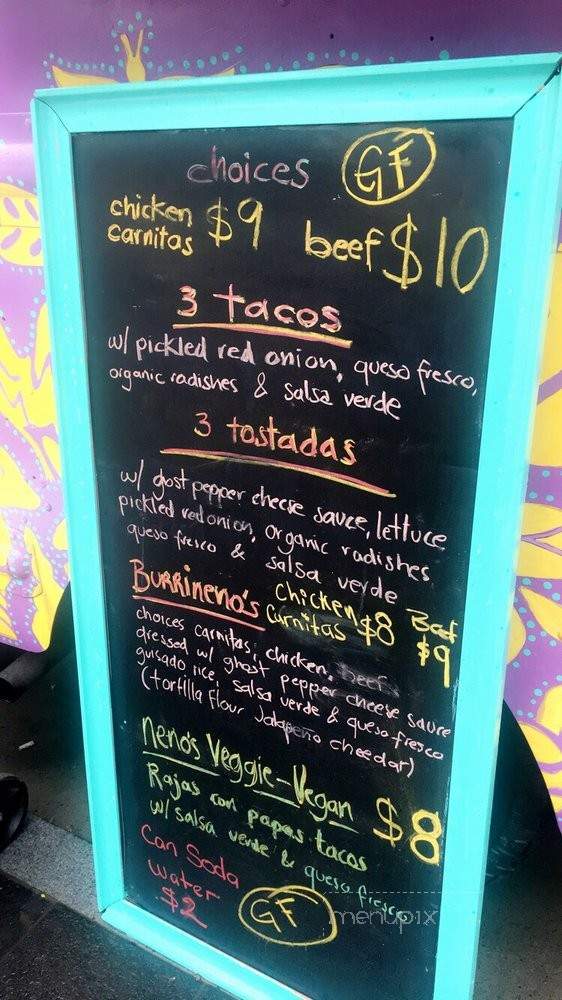 choices GF
chicken carnitas $9 beef $10
3 tacos
w/ pickled red onion, queso fresco,
organic radishes & salsa verde
3 tostadas
w/ ghost pepper cheese sauce, lettuce
pickled red onion, organic radishes
queso fresco & salsa verde
BURRINENO'S Chicken Carnitas $8 Beef $9
choices carnitas, chicken, beef
dressed w/ ghost pepper cheese sauce
guisado rice, salsa verde & queso fresco
(tortilla flour Jalapeño cheedar)
neno's Veggie-Vegan $8
Rajas con papas tacos
w/ salsa verde & queso fresco
Can Soda
water
$2
GF
menupix